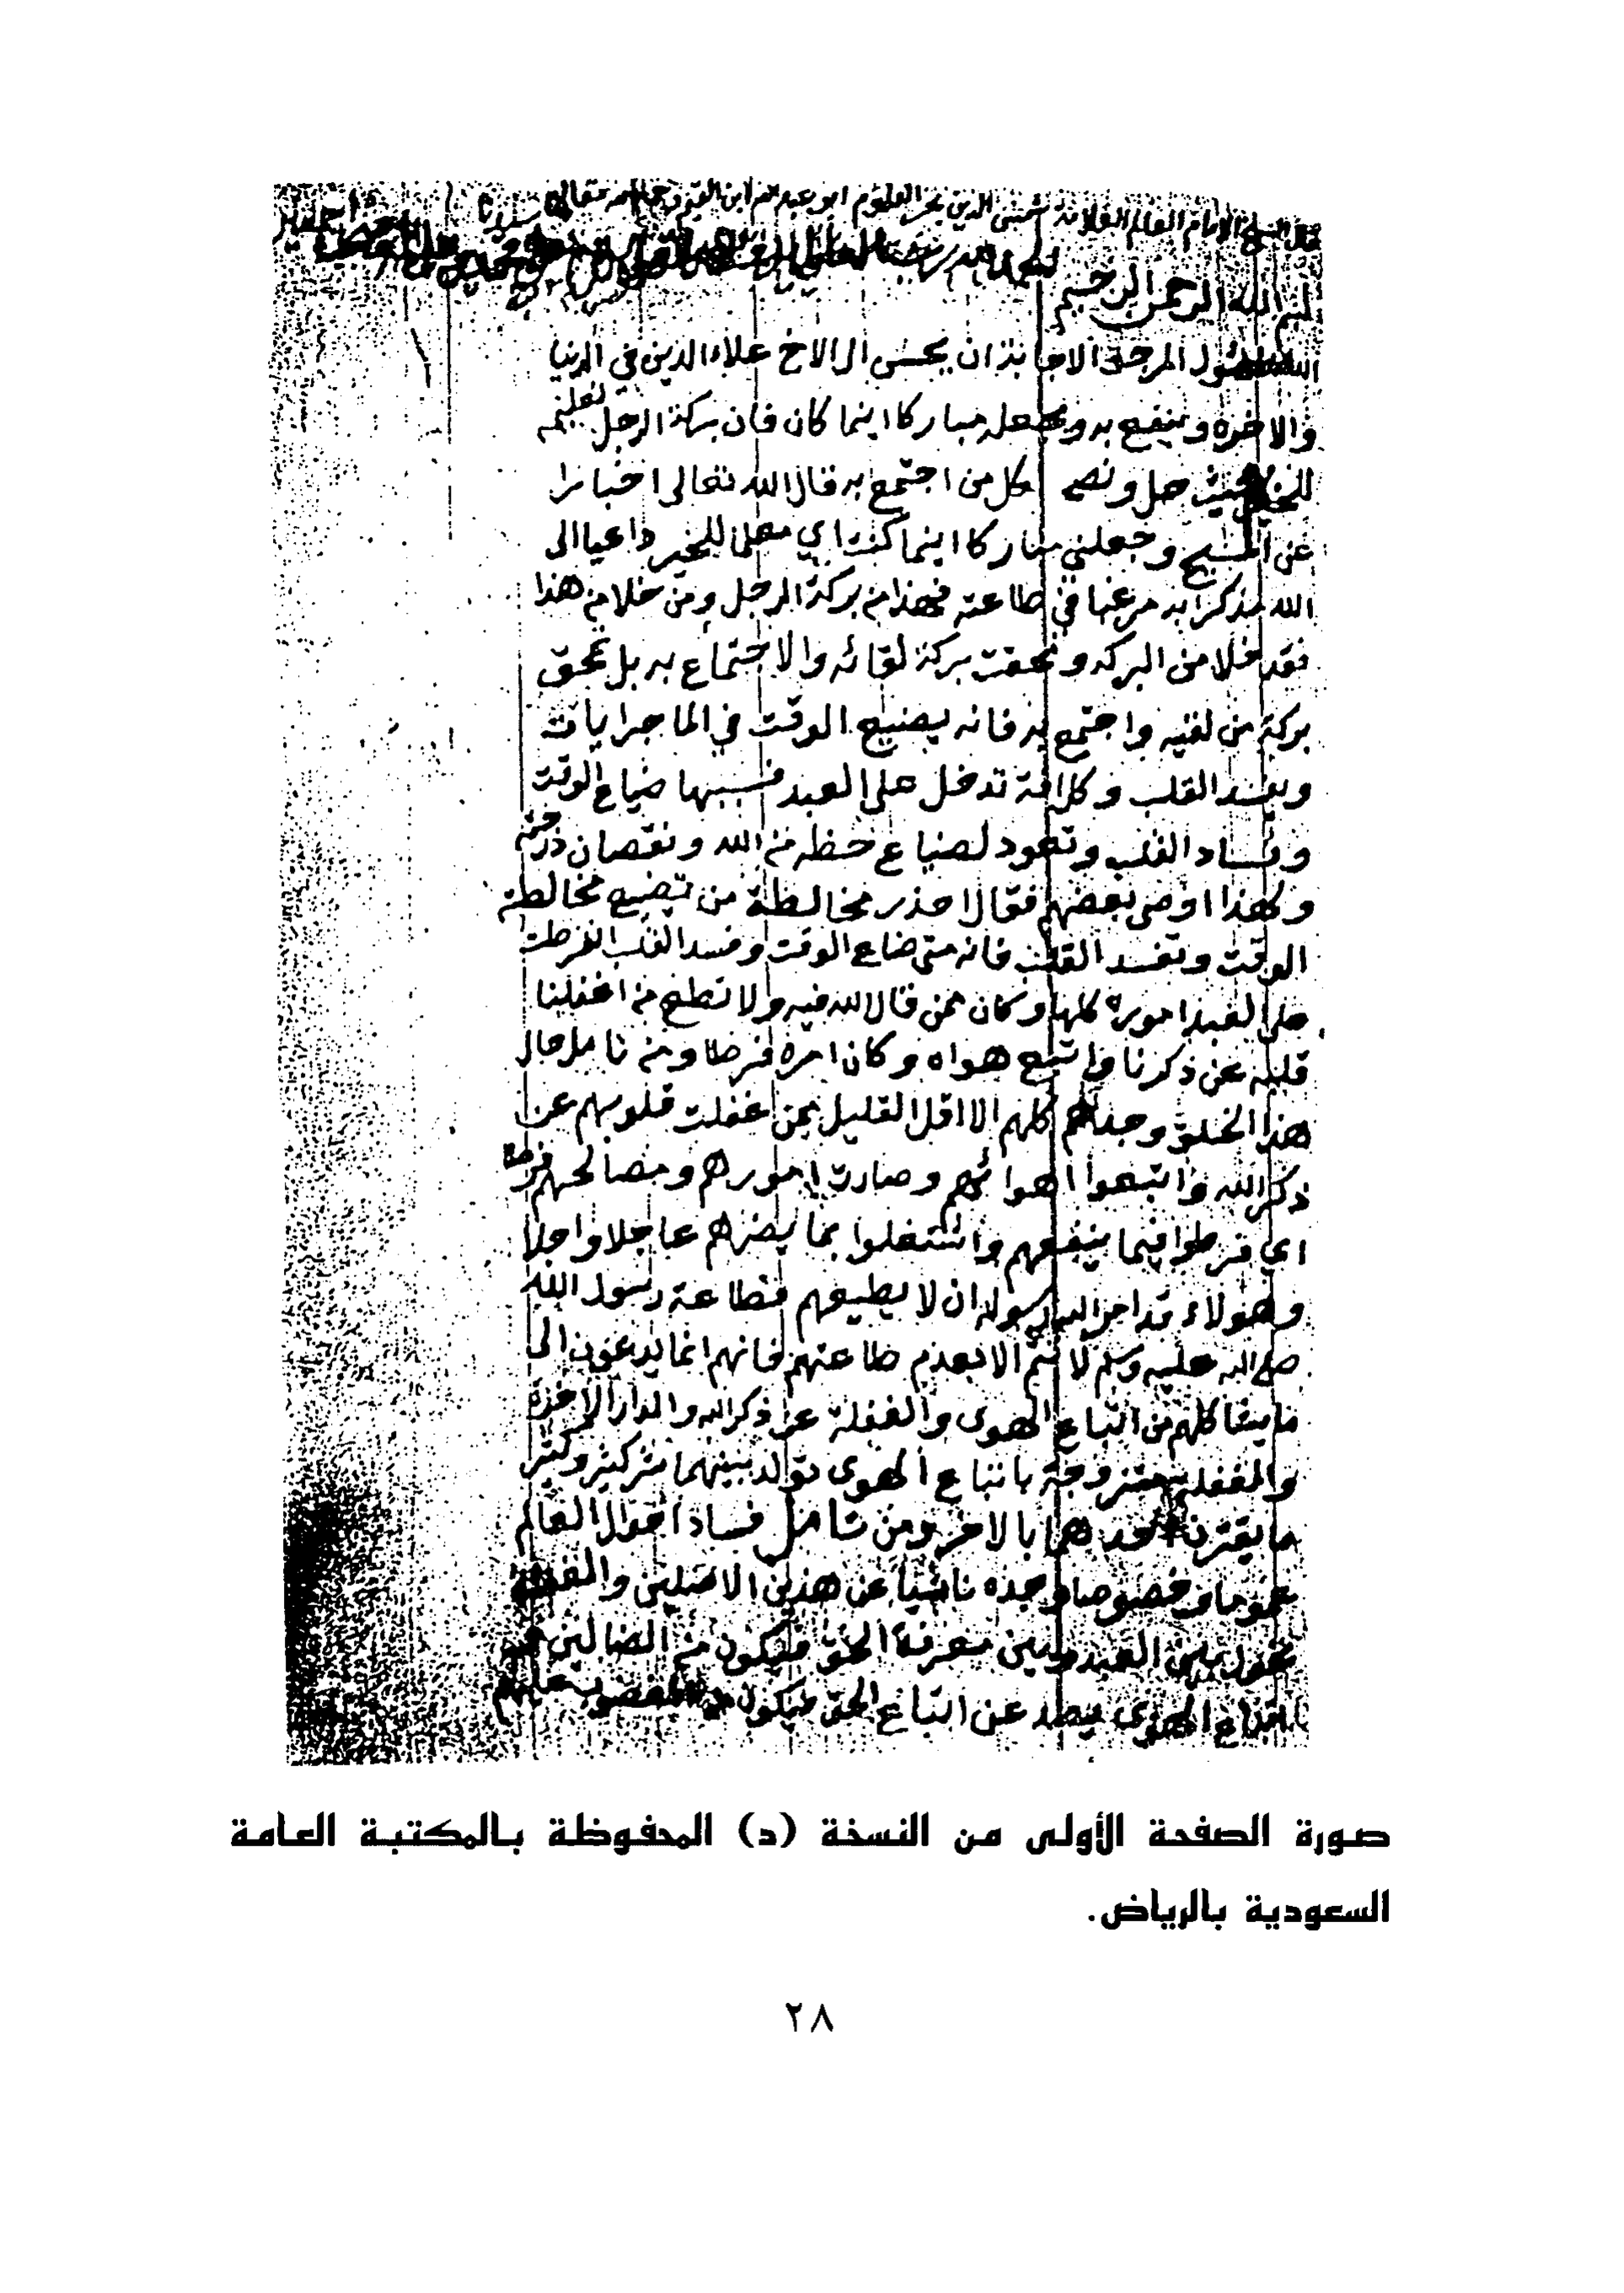 قال الشيخ الامام العالم العلامة شمس الدين بحر العلوم ابو عبد الله ابن القيم رحمه الله تعالى
بسم الله الرحمن الرحيم
الله المسئول المرجو الاجابة ان يحسن الى الاخ علاء الدين في الدنيا
والاخرة وينفع به ويجعله مباركا اينما كان فان بركة الرجل تعليمه
للخير حيث حل ونصحه لكل من اجتمع به قال الله تعالى اخبارا
عن المسيح وجعلني مباركا اينما كنت اي معلما للخير داعيا الى
الله مذكرا به مرغبا في طاعته فهذا من بركة الرجل ومن خلا من هذا
فقد خلا من البركة ومحقت بركة لقائه والاجتماع به بل تمحق
بركة من لقيه واجتمع به فانه يضيع الوقت في الماجرايات
ويفسد القلب وكل افة تدخل على العبد فسببها ضياع الوقت
وفساد القلب وتعود لضياع حظه من الله ونقصان درجته
ولهذا اوصى بعضهم فقال احذر مخالطة من تضيع مخالطته
الوقت وتفسد القلب فانه متى ضاع الوقت وفسد القلب انفرطت
على العبد اموره كلها وكان ممن قال الله فيه ولا تطع من اغفلنا
قلبه عن ذكرنا واتبع هواه وكان امره فرطا ومن تامل حال
هذا الخلق وجدهم كلهم الا اقل القليل ممن غفلت قلوبهم عن
ذكر الله واتبعوا اهوائهم وصارت امورهم ومصالحهم فرطا
اي فرطوا فيما ينفعهم واشتغلوا بما يضرهم عاجلا واجلا
وهولاء قد امر الله رسوله ان لا يطيعهم فطاعة رسول الله
صلى الله عليه وسلم لا تتم الا بعدم طاعتهم فانهم انما يدعون الى
ما يشاكلهم من اتباع الهوى والغفلة عن ذكر الله والدار الاخرة
والغفلة متزوجة باتباع الهوى تولد بينهما شر كثير وكثير
ما يقترن احدهما بالاخر ومن تامل فساد احوال العالم
عموما وخصوصا وجده ناشيا عن هذين الاصلين والغفلة
تحول بين العبد وبين معرفة الحق فيكون من الضالين
واتباع الهوى يصد عن اتباع الحق فيكون من المغضوب عليهم
صورة الصفحة الأولى من النسخة (د) المحفوظة بالمكتبة العامة
السعودية بالرياض.
٢٨